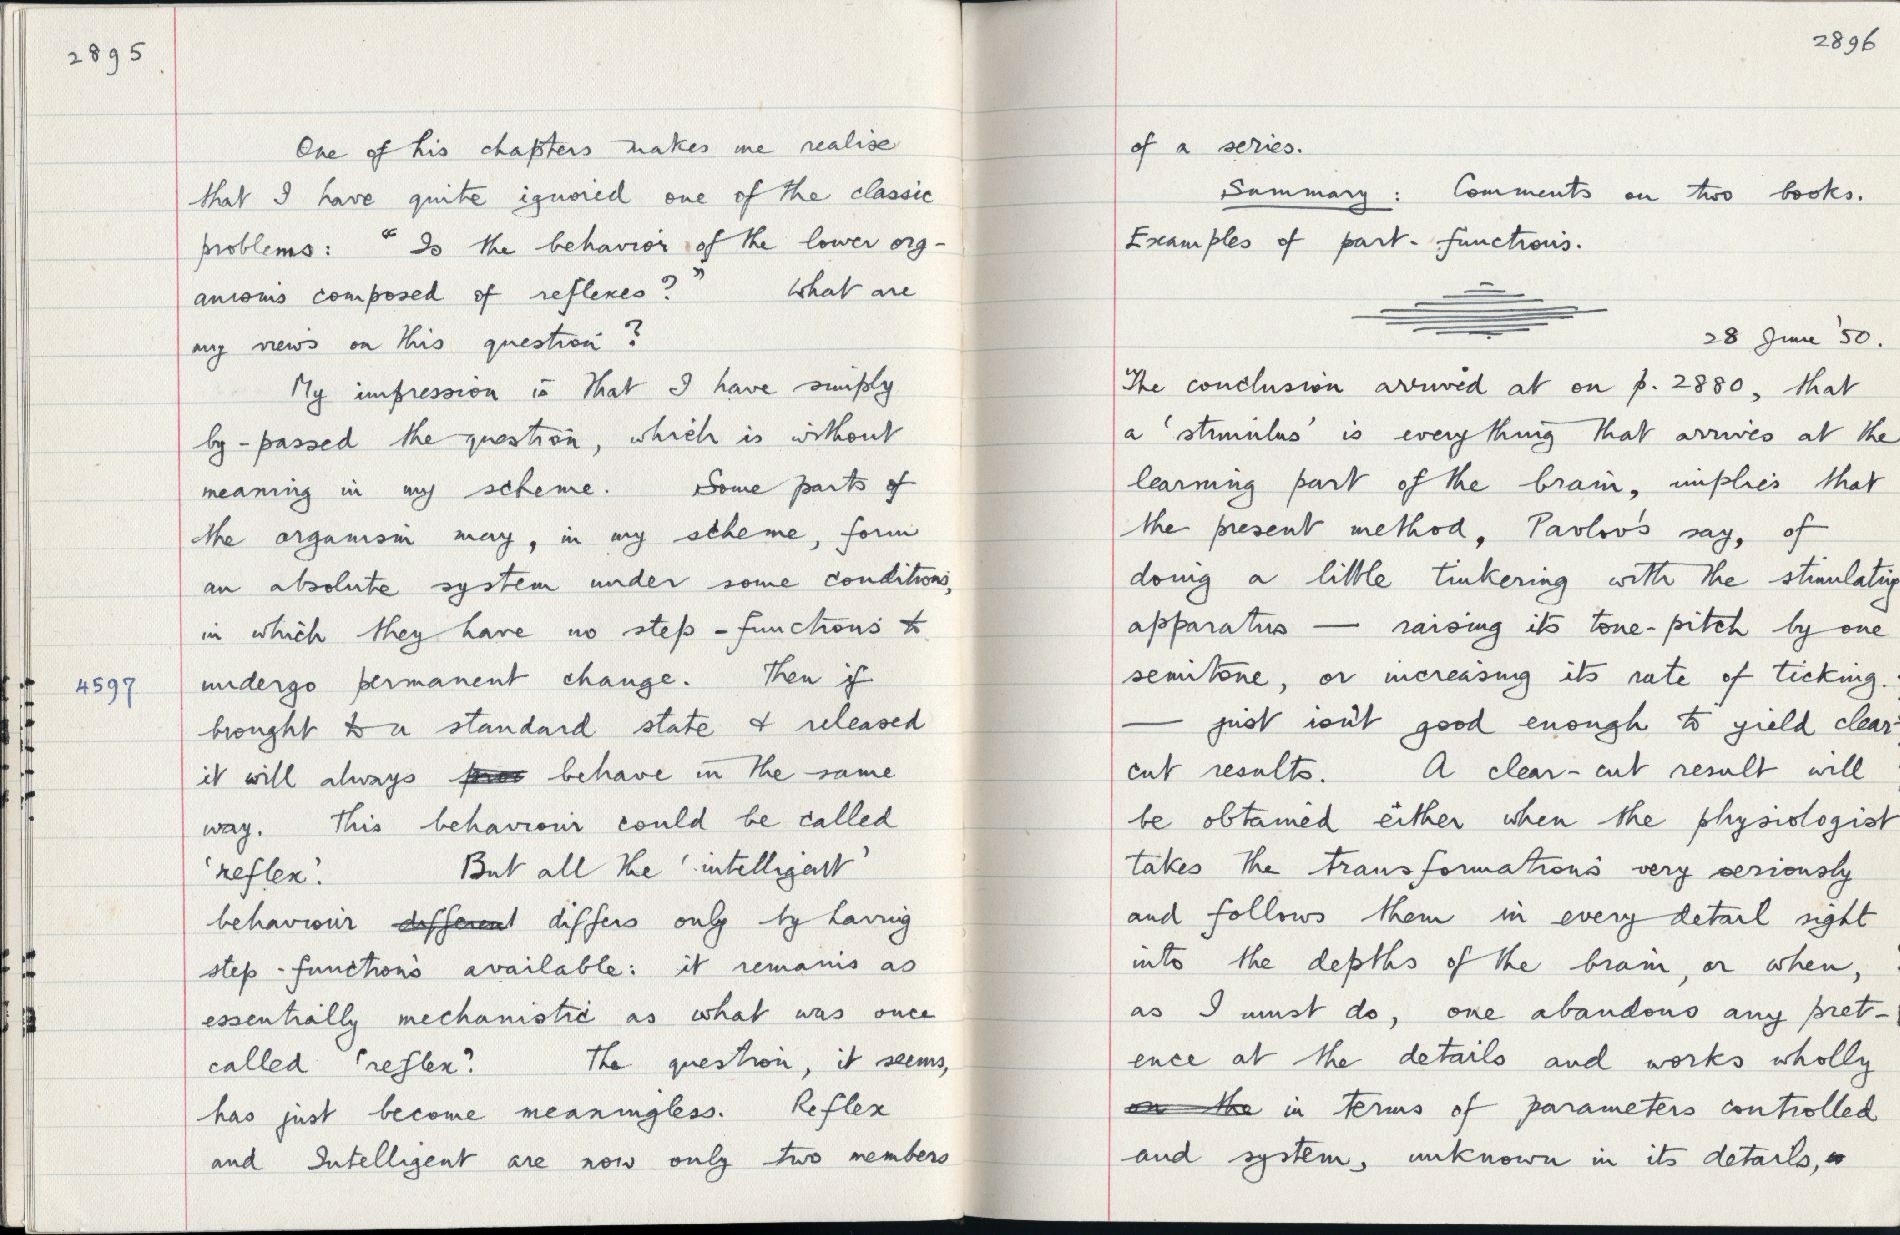 2895
One of his chapters makes me realise
that I have quite ignored one of the classic
problems: "Is the behavior of the lower org-
anisms composed of reflexes?" What are
my views on this question?
My impression is that I have simply
by-passed the question, which is without
meaning in my scheme. Some parts of
the organism may, in my scheme, form
an absolute system under some conditions,
in which they have no step-functions to
4597
undergo permanent change. Then if
brought to a standard state & released
it will always behave in the same
way. This behaviour could be called
'reflex'. But all the 'intelligent'
behaviour different differs only by having
step-functions available: it remains as
essentially mechanistic as what was once
called 'reflex'. The question, it seems,
has just become meaningless. Reflex
and Intelligent are now only two members
2896
of a series.
Summary: Comments on two books.
Examples of part-functions.
28 June '50.
The conclusion arrived at on p. 2880, that
a 'stimulus' is everything that arrives at the
learning part of the brain, implies that
the present method, Pavlov's say, of
doing a little tinkering with the stimulating
apparatus — raising its tone-pitch by one
semitone, or increasing its rate of ticking
— just isn't good enough to yield clear-
cut results. A clear-cut result will
be obtained either when the physiologist
takes the transformations very seriously
and follows them in every detail right
into the depths of the brain, or when,
as I must do, one abandons any pret-
ence at the details and works wholly
on the in terms of parameters controlled
and system, unknown in its details,